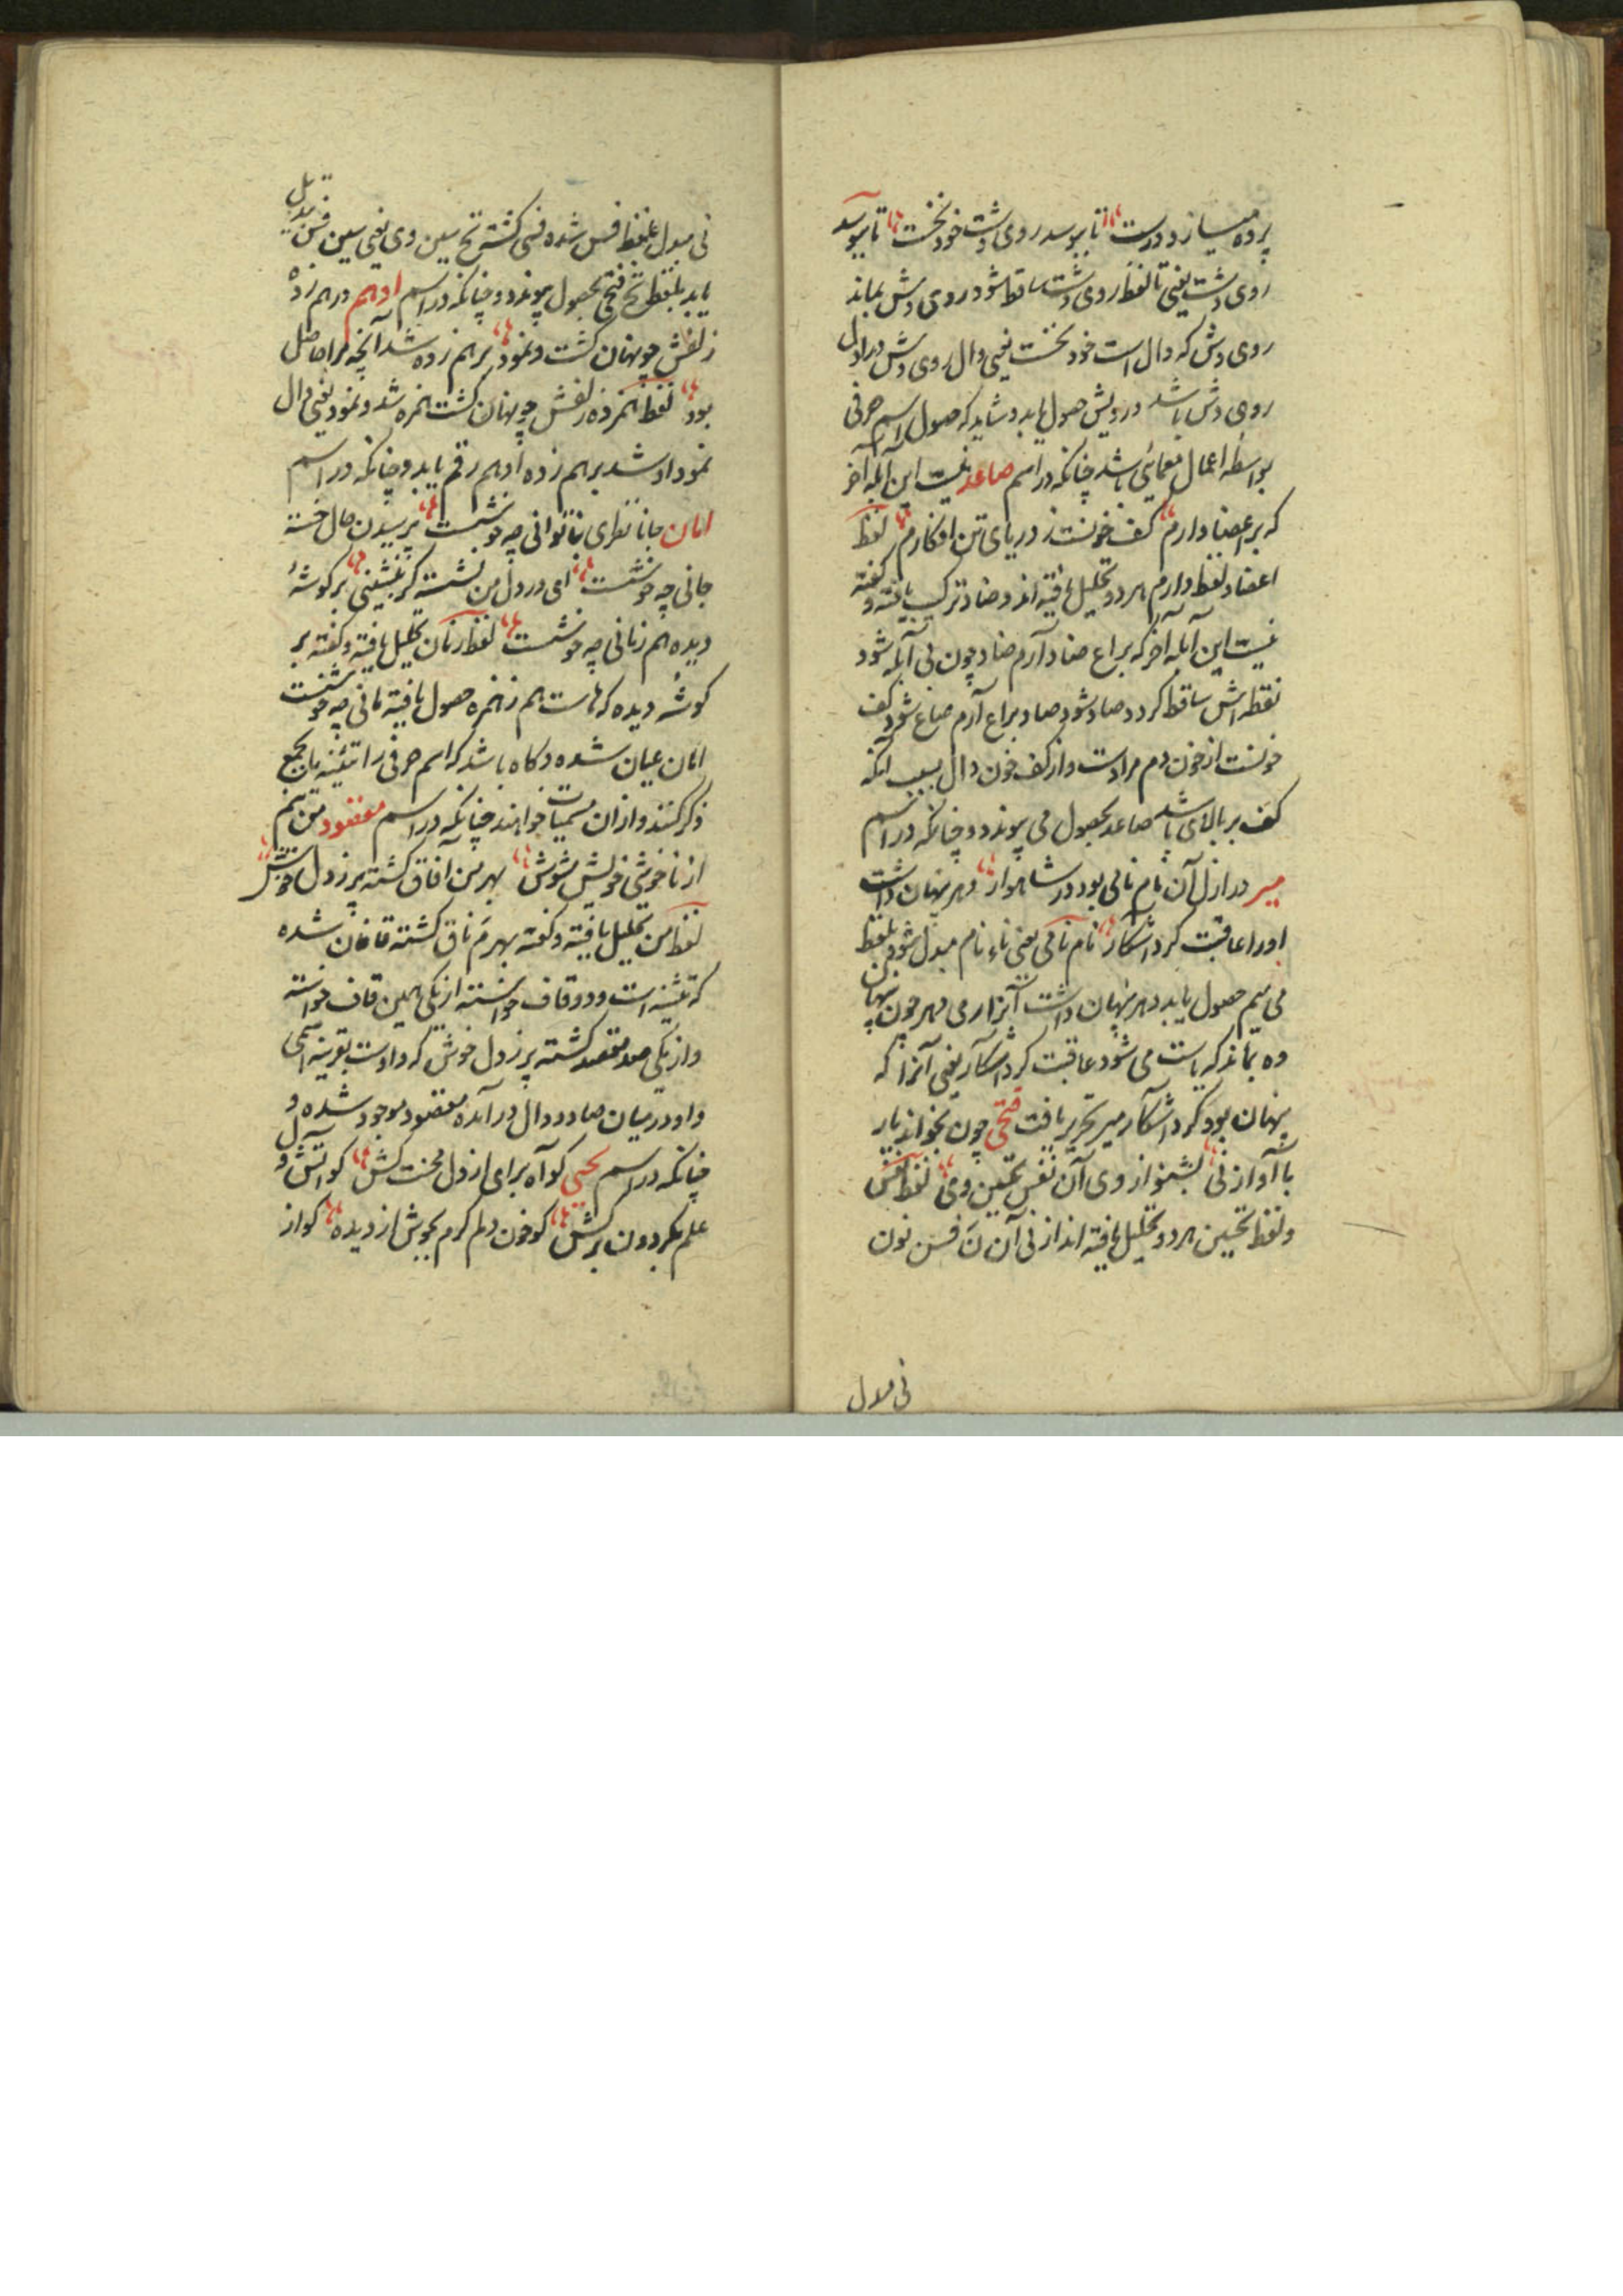 پرده میسازد درست تا ببوسد روی دشت خود نخست تا ببوسد
روی دشت یعنی تا لفظ روی دشت ساقط شود روی دش بماند
روی دش که دال است خود نخست یعنی دال روی دش در اول
روی دش باشد درویش حصول یابد و شاید که حصول اسم حرفی
بواسطه اعمال معمائی باشد چنانکه در اسم صاعد نیست این ابله آخر
که بر اعضا دارم کف خونست ز دریای تن افکارم لفظ
اعضا و لفظ دارم هر دو تحلیل یافته اند و ضاد ترکیب یافته و گفته
نیست این آبله آخر که بر اع ضاد آرم ضاد چون بی آبله شود
نقطه اش ساقط گردد صاد شود صاد بر اع آرم صاع شود کف
خونست از خون دم مرادست و از کف خون دال بسبب آنکه
کف بر بالای باشد صاعد بحصول می پیوندد و چنانکه در اسم
میر در ازل آن نام نامی بود در شاهوار مهر پنهان داشت
او را عاقبت کرد آشکار نام نامی یعنی ناء نام مبدل شود بلفظ
می میم حصول یابد مهر پنهان داشت آنرا ر می مهر چون پنهان
ده بماند که یاست می شود عاقبت کرد آشکار یعنی آنرا که
پنهان بود کرد آشکار میر تحریر یافت فتحی چون بخواند یار
با آواز نی بشنو از وی آن نفس تحسین وی لفظ نفس
و لفظ تحسین هر دو تحلیل یافته اند از نی آن نَ فس نون
نی مبدل
نی مبدل بلفظ فس شده فسی گشته تح سین وی یعنی سین فسی تبدیل
یابد بلفظ تح فتحی بحصول پیوندد و چنانکه در اسم ادهم درهم زده
زلفش چو پنهان گشت و نمود برهم زده شد آنچه مرا حاصل
بود لفظ همزده زلفش چو پنهان گشت همزه شد و نمود یعنی دال
نمود او شد برهم زده ادهم رقم یابد و چنانکه در اسم
امان جانا نظری بناتوانی چه خوشست پرسیدن حال خسته
جانی چه خوشست ای در دل من نشسته گر بنشینی بر گوشهٔ
دیده هم زمانی چه خوشست لفظ زمان تحلیل یافته و گفته بر
گوشهٔ دیده که هاست هم ز همزه حصول یافته مانی چه خوشست
امان عیان شده و گاه باشد که اسم حرفی را تثنیه یا جمع
ذکر کنند و از آن مسمیات خواهند چنانکه در اسم مقصود من نیم
از ناخوشی خویش مشوش بهر من آفاق گشته پر ز دل خوش
لفظ من تحلیل یافته و گفته بهر مَ نآق گشته قافان شده
که تثنیه است و دو قاف خواسته از یکی همین قاف خواسته
و از یکی صد مقصد گشته پر ز دل خوش که واوست بقرینه اسمی
واو در میان صاد و دال در آمده مقصود موجود شده و
چنانکه در اسم یحیی کو آه برای از دل محنت کش کو آتش دل
علم بگردون برکش کو خون دلم گرم بجوش از دیده کو از